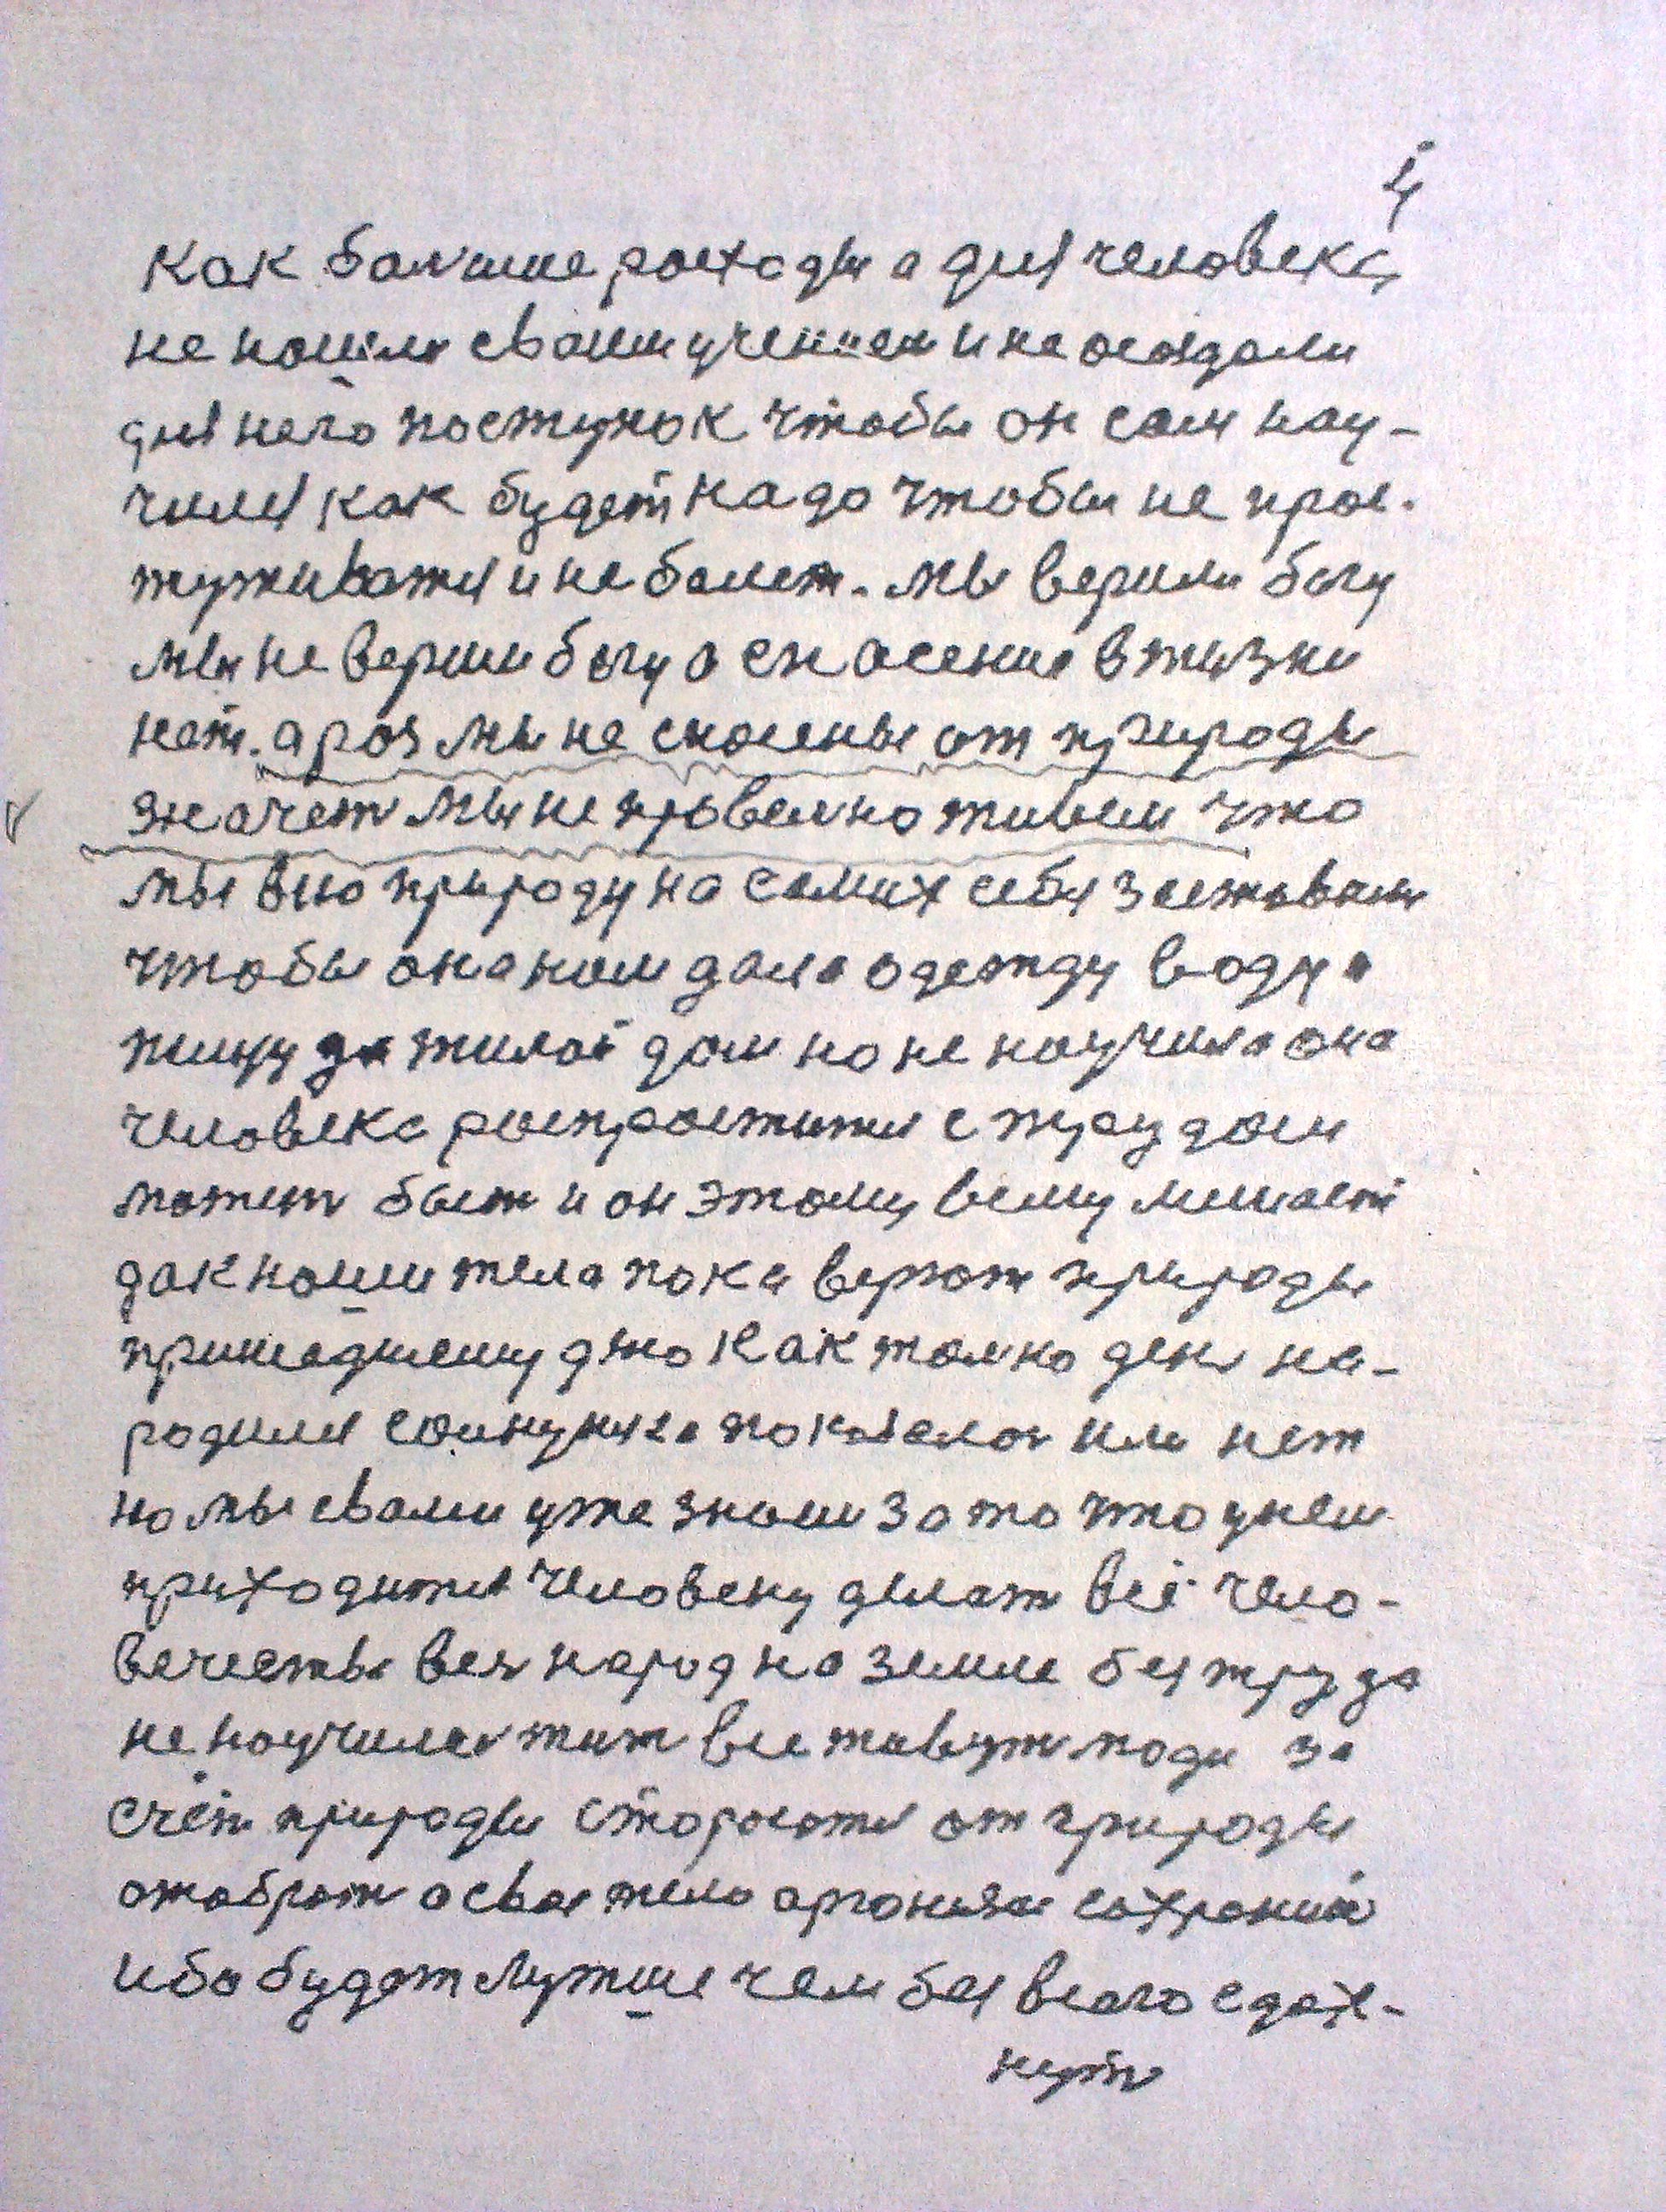 4
как болше росходы а для человека
не нашли своим учением и не создали
для него поступок чтобы он сам нау-
чился как будет надо чтобы не прос-
туживатся и не болет. мы верили богу
мы не верили богу а спасение в жизни
нет. а роз мы не спасены от природы
значет мы не провелно живем что
мы всю природу на самих себя заставили
чтобы она нам дала одежду воду и
пищу да жилой дом но не научила она
человека роспростится с трудом
может быт и он этому всему мешает
дак наши тела пока верют природы
пришедшему дню как толко ден на-
родился солнушка показалос или нет
но мы свами уже знаем за то что у нем
приходится человеку делат всё чело-
вечества вес народ на земле без труда
не научилис жит все живут люди за
счёт природы стараются от природы
отобрат а свае тело организм сохранит
ибо будет лутше чем без всего сдох-
нут